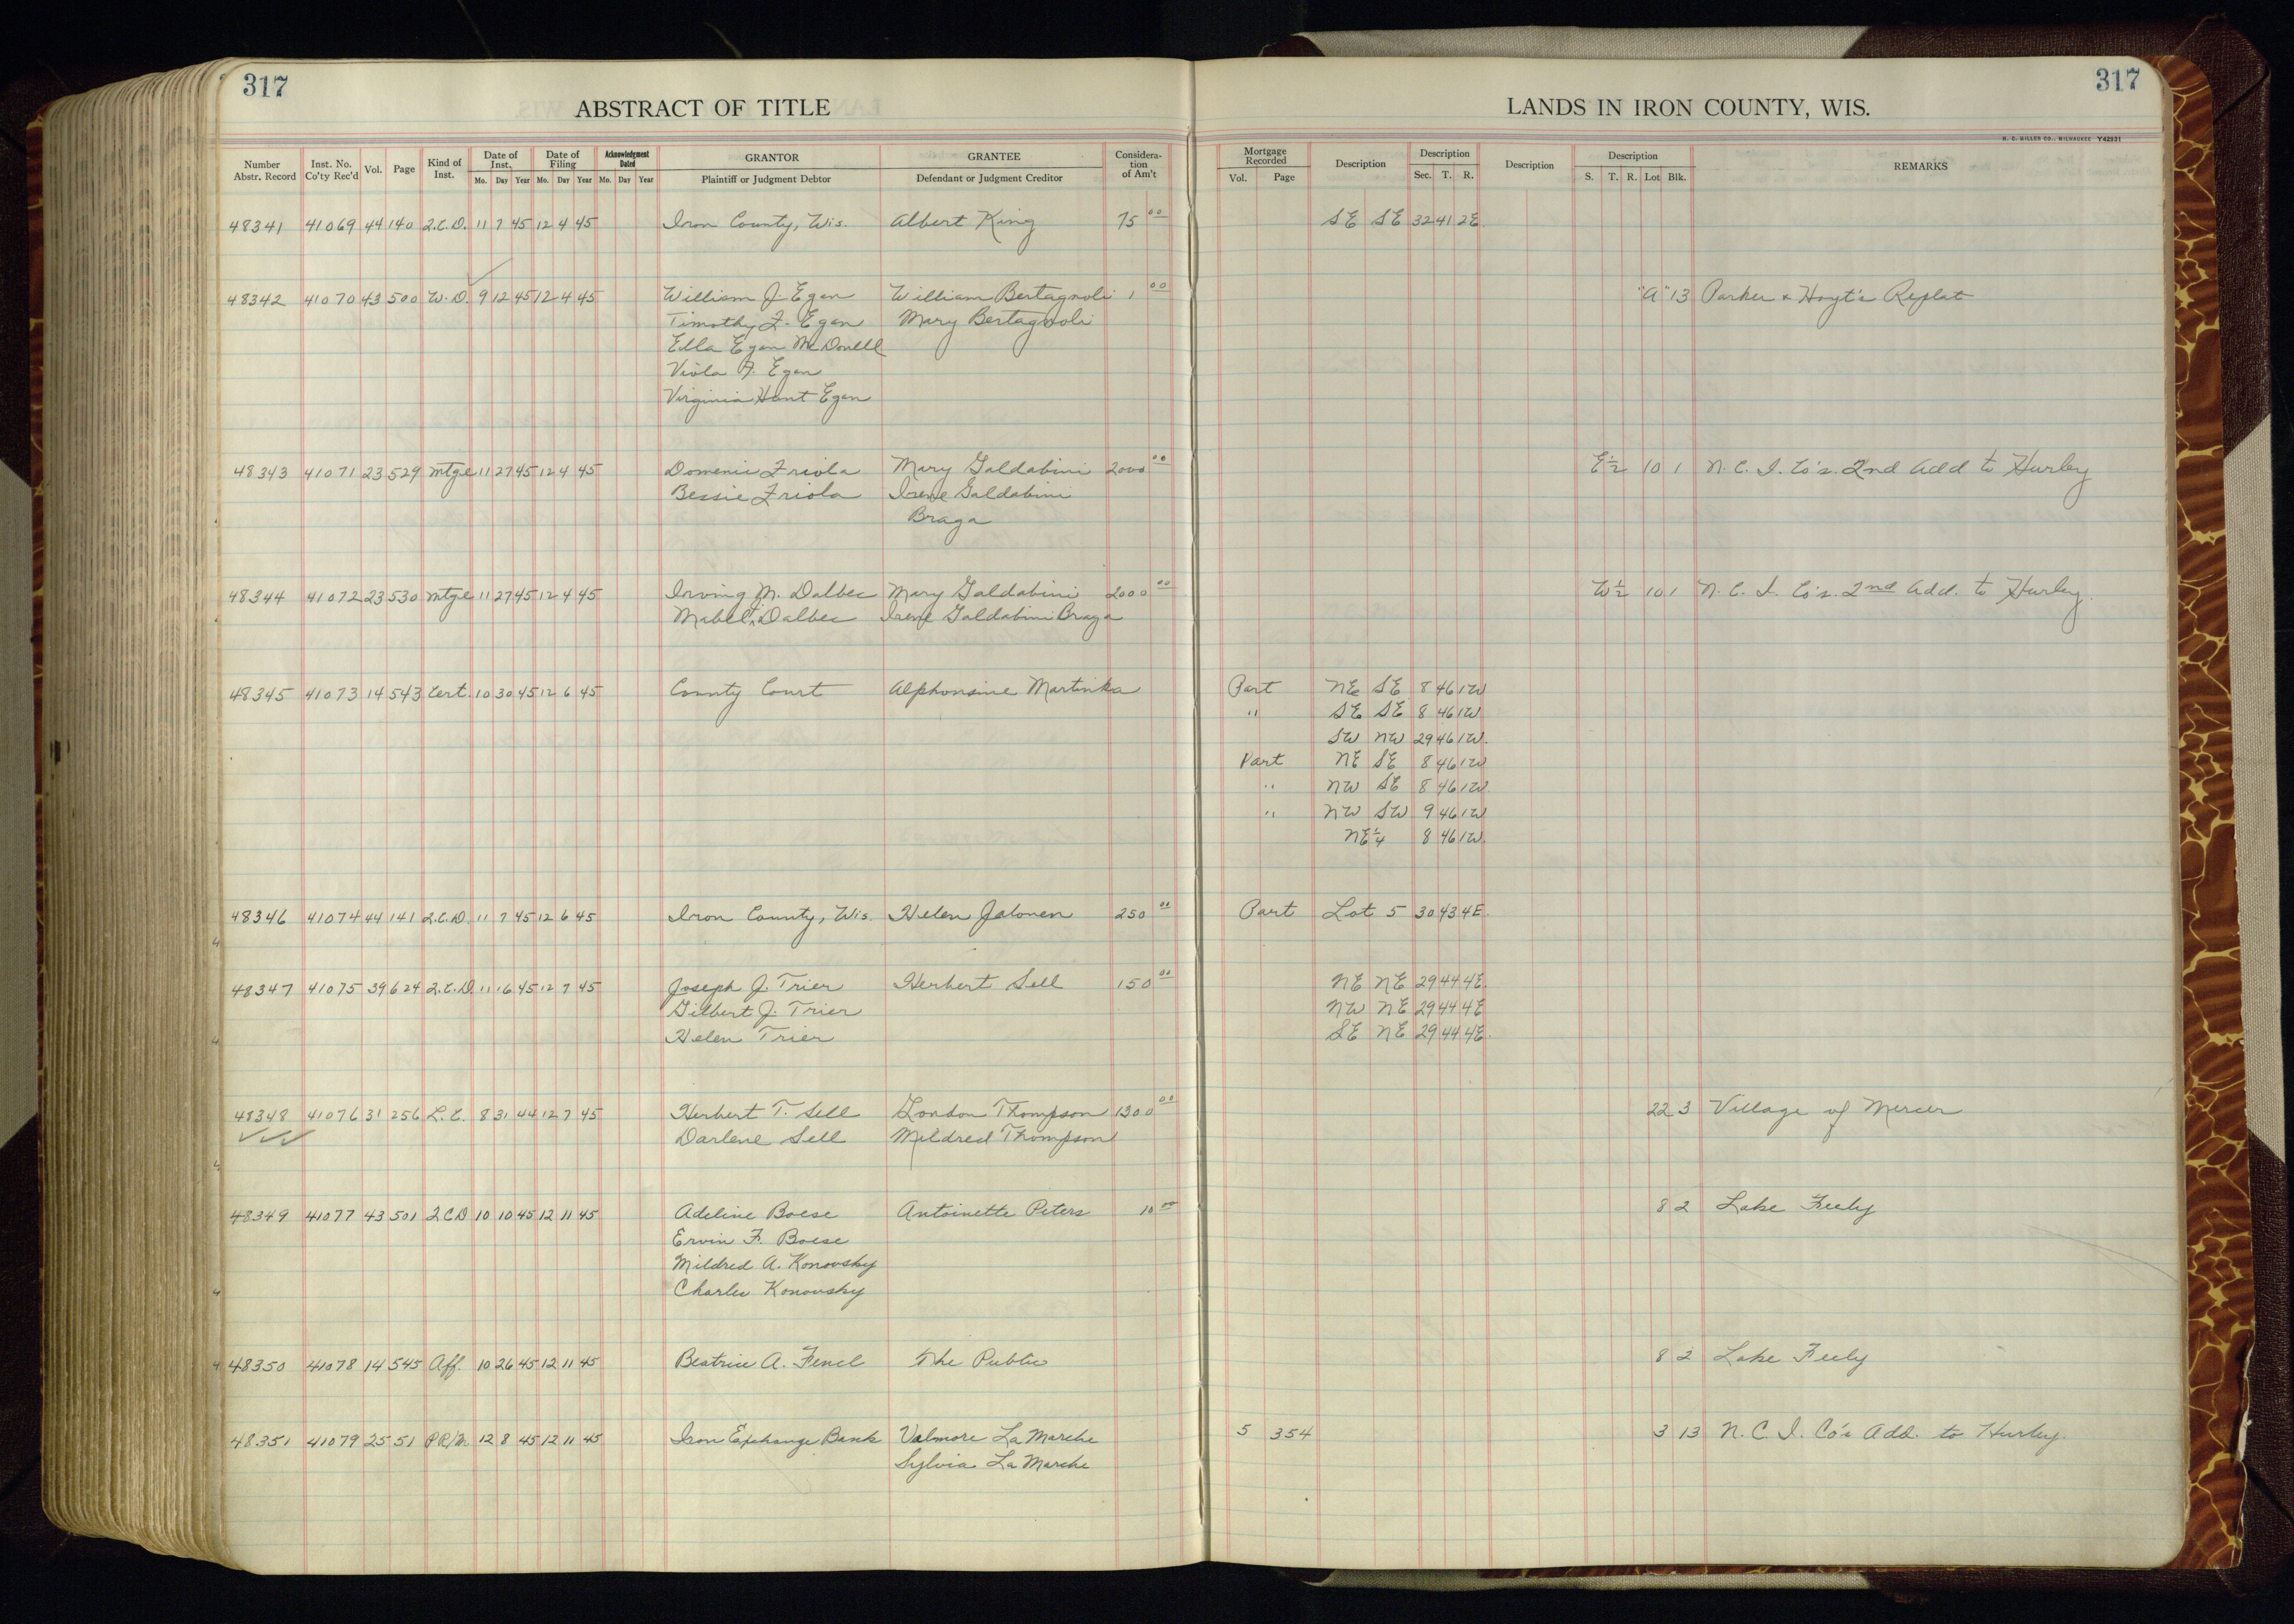 317
317
ABSTRACT OF TITLE
LANDS IN IRON COUNTY, WIS.
H. C. MILLER CO., MILWAUKEE Y42931
Number Abstr. Record Inst. No. Co'ty Rec'd Vol. Page Kind of Inst. Date of Inst. Mo. Day Year Date of Filing Mo. Day Year Acknowledgment Dated Mo. Day Year GRANTOR Plaintiff or Judgment Debtor GRANTEE Defendant or Judgment Creditor Considera-tion of Am't Mortgage Recorded Vol. Page Description Description Sec. T. R. Description Description S. T. R. Lot Blk. REMARKS
48341 41069 44 140 Q.C.D. 11 7 45 12 4 45 Iron County, Wis. Albert King 75 00 SE SE 32 41 2E.
48342 41070 43 500 W.D. 9 12 45 12 4 45 William J. Egan William Bertagnoli 1 00 "A" 13 Parker & Hoyt's Replat
Timothy F. Egan Mary Bertagnoli
Ella Egan McDonell
Viola F. Egan
Virginia Hunt Egan
48343 41071 23 529 Mtge 11 27 45 12 4 45 Domenic Friola Mary Galdabini 2000 00 E½ 10 1 N. C. I. Co's. 2nd Add to Hurley
Bessie Friola Irene Galdabini
Braga
48344 41072 23 530 Mtge 11 27 45 12 4 45 Irving M. Dalbec Mary Galdabini 2000 00 W½ 10 1 N. C. I. Co's. 2nd Add. to Hurley.
Mabel Dalbec Irene Galdabini Braga
48345 41073 14 543 Cert. 10 30 45 12 6 45 County Court Alphonsine Martinka Part NE SE 8 46 1W
" SE SE 8 46 1W
SW NW 29 46 1W.
Part NE SE 8 46 1W
" NW SE 8 46 1W.
" NW SW 9 46 1W
NE¼ 8 46 1W.
48346 41074 44 141 Q.C.D. 11 7 45 12 6 45 Iron County, Wis. Helen Jalonen 250 00 Part Lot 5 30 43 4E.
48347 41075 39 624 Q.C.D. 11 16 45 12 7 45 Joseph J. Trier Herbert Sell 150 00 NE NE 29 44 4E.
Gilbert J. Trier NW NE 29 44 4E
Helen Trier SE NE 29 44 4E.
48348 41076 31 256 L.C. 8 31 44 12 7 45 Herbert T. Sell Gordon Thompson 1300 00 22 3 Village of Mercer
Darlene Sell Mildred Thompson
48349 41077 43 501 QCD 10 10 45 12 11 45 Adeline Boese Antoinette Peters 10 00 8 2 Lake Feely
Ervin F. Boese
Mildred A. Konovsky
Charles Konovsky
48350 41078 14 545 Aff. 10 26 45 12 11 45 Beatrice A. Fencl The Public 8 2 Lake Feely
48351 41079 25 51 PR/M 12 8 45 12 11 45 Iron Exchange Bank Valmore La Marche 5 354 3 13 N. C. I. Co's Add. to Hurley.
Sylvia La Marche